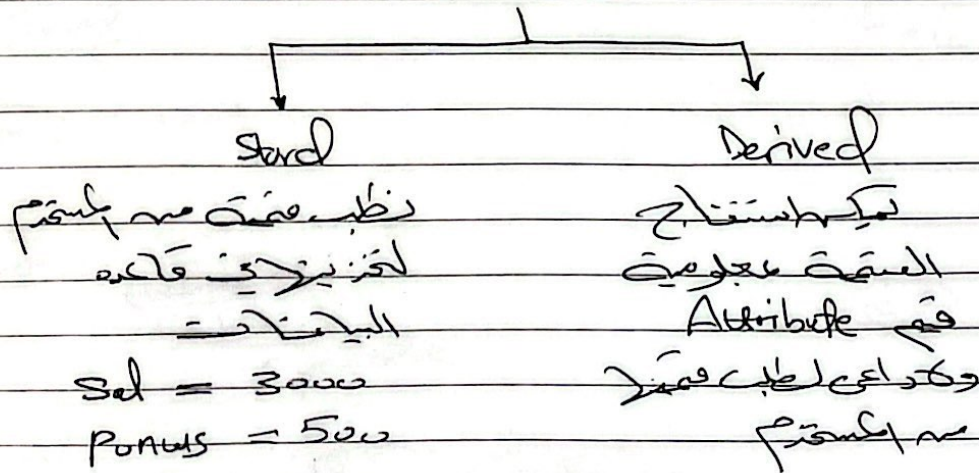 Stored
نطلب قيمته من المستخدم
لتخزينها في قاعدة
البيانات
Sal = 3000
Ponus = 500
Derived
يمكن استنتاج
القيمة بمعلومية
قيم Attribute
ولا داعي لطلب قيمتها
من المستخدم